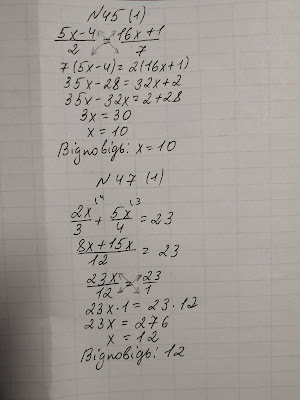 N45 (1)
(5x-4)/2 = (16x+1)/7
7(5x-4)=2(16x+1)
35x-28=32x+2
35x-32x=2+28
3x=30
x=10
Відповідь: x=10
N47 (1)
2x/3 \4 + 5x/4 \3 = 23
(8x+15x)/12 = 23
23x/12 = 23/1
23x·1=23·12
23x=276
x=12
Відповідь: 12